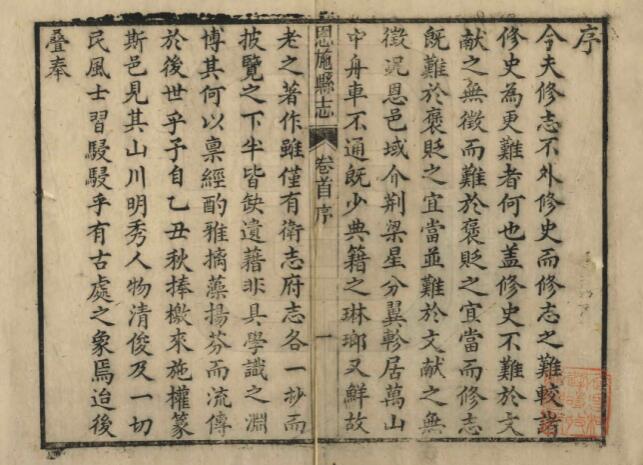 序
今夫修志不外修史而修志之難較諸
修史為更難者何也盖修史不難於文
献之無徵而難於褒貶之宜當而修志
既難於褒貶之宜當並難於文献之無
徵况恩邑域介荆梁星分翼軫居萬山
中舟車不通既少典籍之琳瑯又鮮故
恩施縣志
卷首序
一
老之著作雖僅有衛志府志各一抄而
披覽之下半皆缺遺藉非具學識之淵
博其何以稟經酌雅摛藻揚芬而流傳
於後世乎予自乙丑秋捧檄來施權篆
斯邑見其山川明秀人物清俊及一切
民風士習駸駸乎有古處之象焉迨後
叠奉